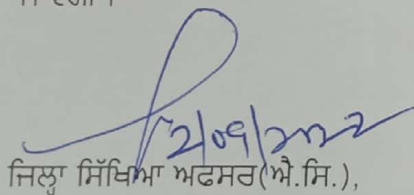 2/09/2022
ਜਿਲ੍ਹਾ ਸਿੱਖਿਆ ਅਫਸਰ(ਐ.ਸਿ.),